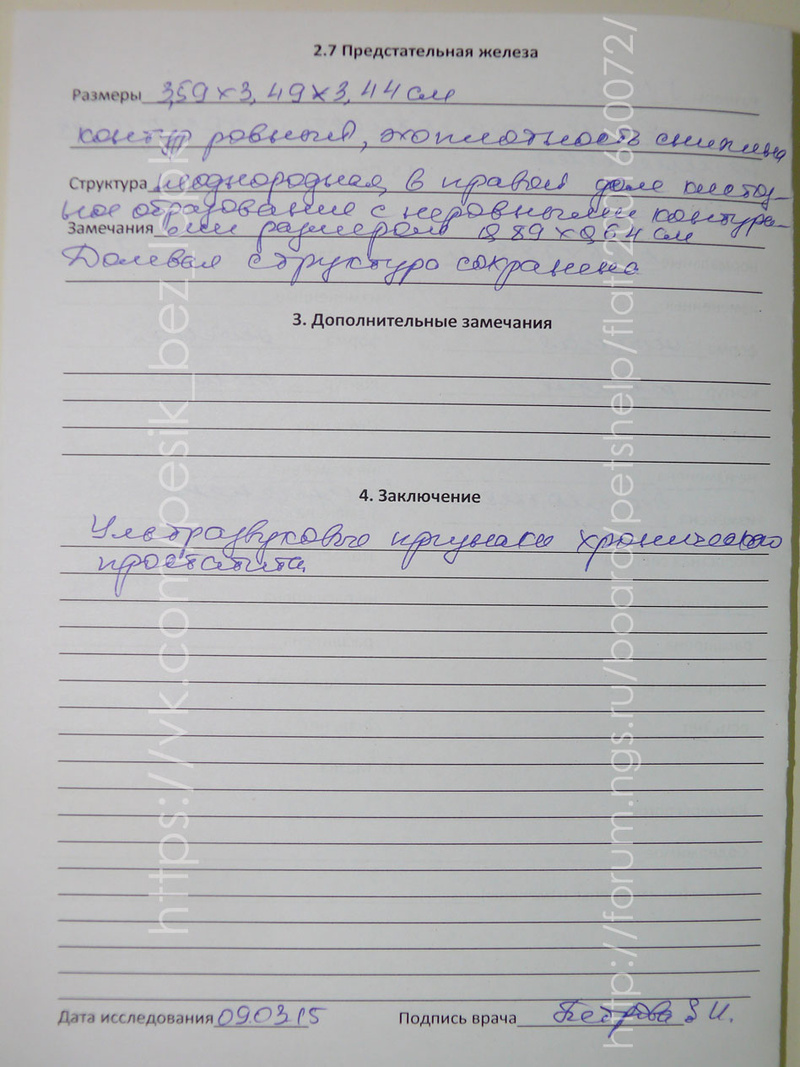 2.7 Предстательная железа
Размеры 3,59 x 3,49 x 3,44 см
контур ровный, эхоплотность снижена
Структура неоднородная, в правой доле кистоз-
ное образование с неровными контура-
Замечания ми размером 0,89 x 0,64 см
Долевая структура сохранена
3. Дополнительные замечания
4. Заключение
Ультразвуковые признаки хронического
простатита
Дата исследования 09.03.15
Подпись врача Петрова
https://vk.com/pesik_bez
http://forum.ngs.ru/board/petshelp/flat/